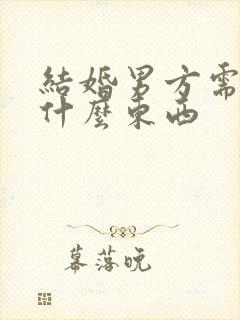 結婚男方需
什麼東西
幕落晚